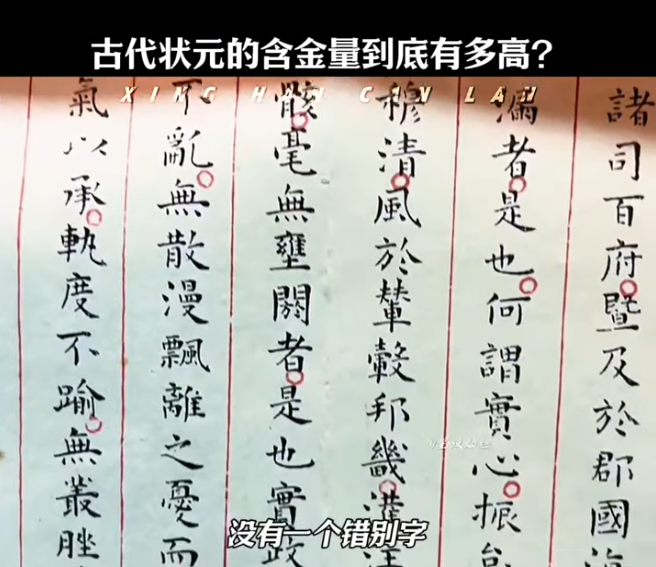 古代状元的含金量到底有多高?
XING HAN CAN LAN
諸司百府暨及於郡國
者是也何謂實心振
穆清風於輦轂邦畿
骸毫無壅閼者是也實政
不亂無散漫飄離之憂而
氣以承軌度不踰無叢脞
没有一个错别字